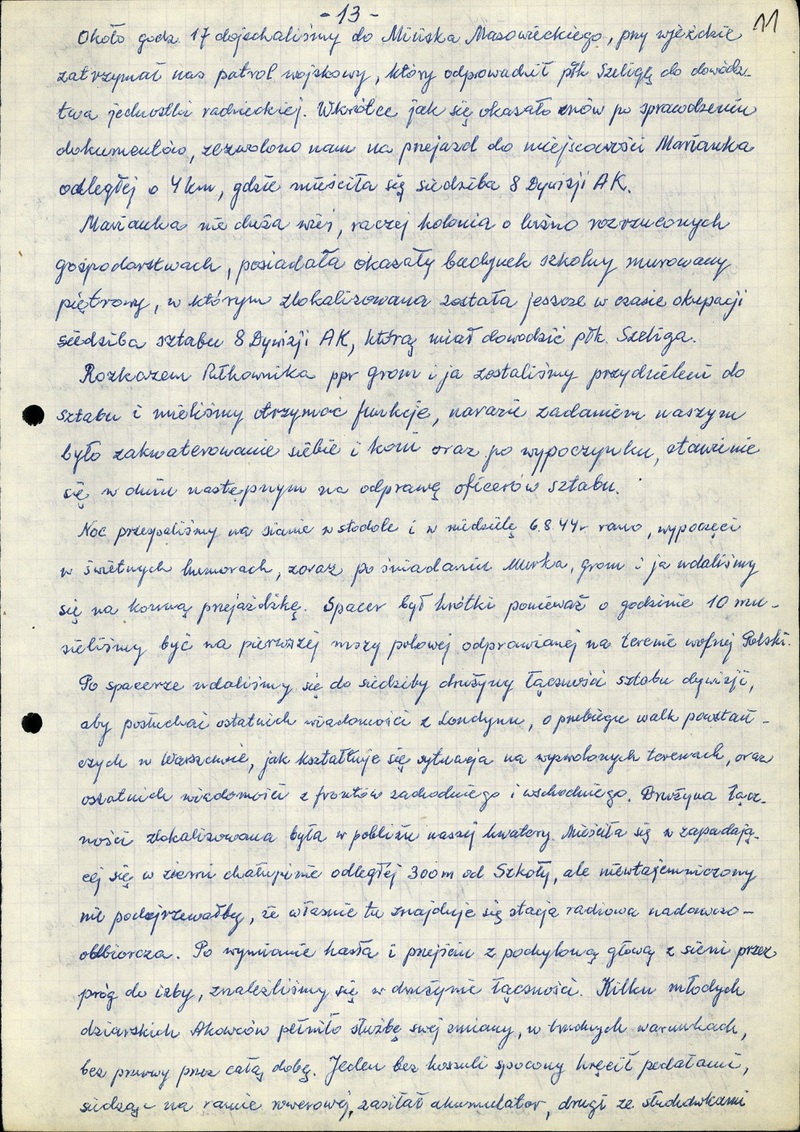 - 13 -
11
Około godz. 17 dojechaliśmy do Mińska Mazowieckiego, przy wjeździe
zatrzymał nas patrol wojskowy, który odprowadził płk Szeligę do dowódz-
twa jednostki radzieckiej. Wkrótce jak się okazało znów po sprawdzeniu
dokumentów, zezwolono nam na przejazd do miejscowości Marianka
odległej o 4 km, gdzie mieściła się siedziba 8 Dywizji AK.
Marianka nie duża wieś, raczej kolonia o luźno rozrzuconych
gospodarstwach, posiadała okazały budynek szkolny murowany
piętrowy, w którym zlokalizowana została jeszcze w czasie okupacji
siedziba sztabu 8 Dywizji AK, którą miał dowodzić płk. Szeliga.
Rozkazem Pułkownika ppr grom i ja zostaliśmy przydzieleni do
sztabu i mieliśmy otrzymać funkcje, narazie zadaniem naszym
było zakwaterowanie siebie i koni oraz po wypoczynku, stawienie
się w dniu następnym na odprawę oficerów sztabu.
Noc przespaliśmy na sianie w stodole i w niedzielę 6.8.44r rano, wypoczęci
w świetnych humorach, zaraz po śniadaniu Murka, grom i ja udaliśmy
się na konną przejażdżkę. Spacer był krótki ponieważ o godzinie 10 mu-
sieliśmy być na pierwszej mszy polowej odprawianej na terenie wolnej Polski.
Po spacerze udaliśmy się do siedziby drużyny łączności sztabu dywizji,
aby posłuchać ostatnich wiadomości z Londynu, o przebiegu walk powstań-
czych w Warszawie, jak kształtuje się sytuacja na wyzwolonych terenach, oraz
ostatnich wiadomości z frontów zachodniego i wschodniego. Drużyna łącz-
ności zlokalizowana była w pobliżu naszej kwatery. Mieściła się w zapadają-
cej się w ziemi chałupinie odległej 300m od Szkoły, ale niewtajemniczony
nie podejrzewałby, że właśnie tu znajduje się stacja radiowa nadawczo-
odbiorcza. Po wymianie hasła i przejściu z pochyloną głową z sieni przez
próg do izby, znaleźliśmy się w drużynie łączności. Kilku młodych
dziarskich Akowców pełniło służbę swej zmiany, w trudnych warunkach,
bez przerwy przez całą dobę. Jeden bez koszuli spocony kręcił pedałami,
siedząc na ramie rowerowej, zasilał akumulator, drugi ze słuchawkami